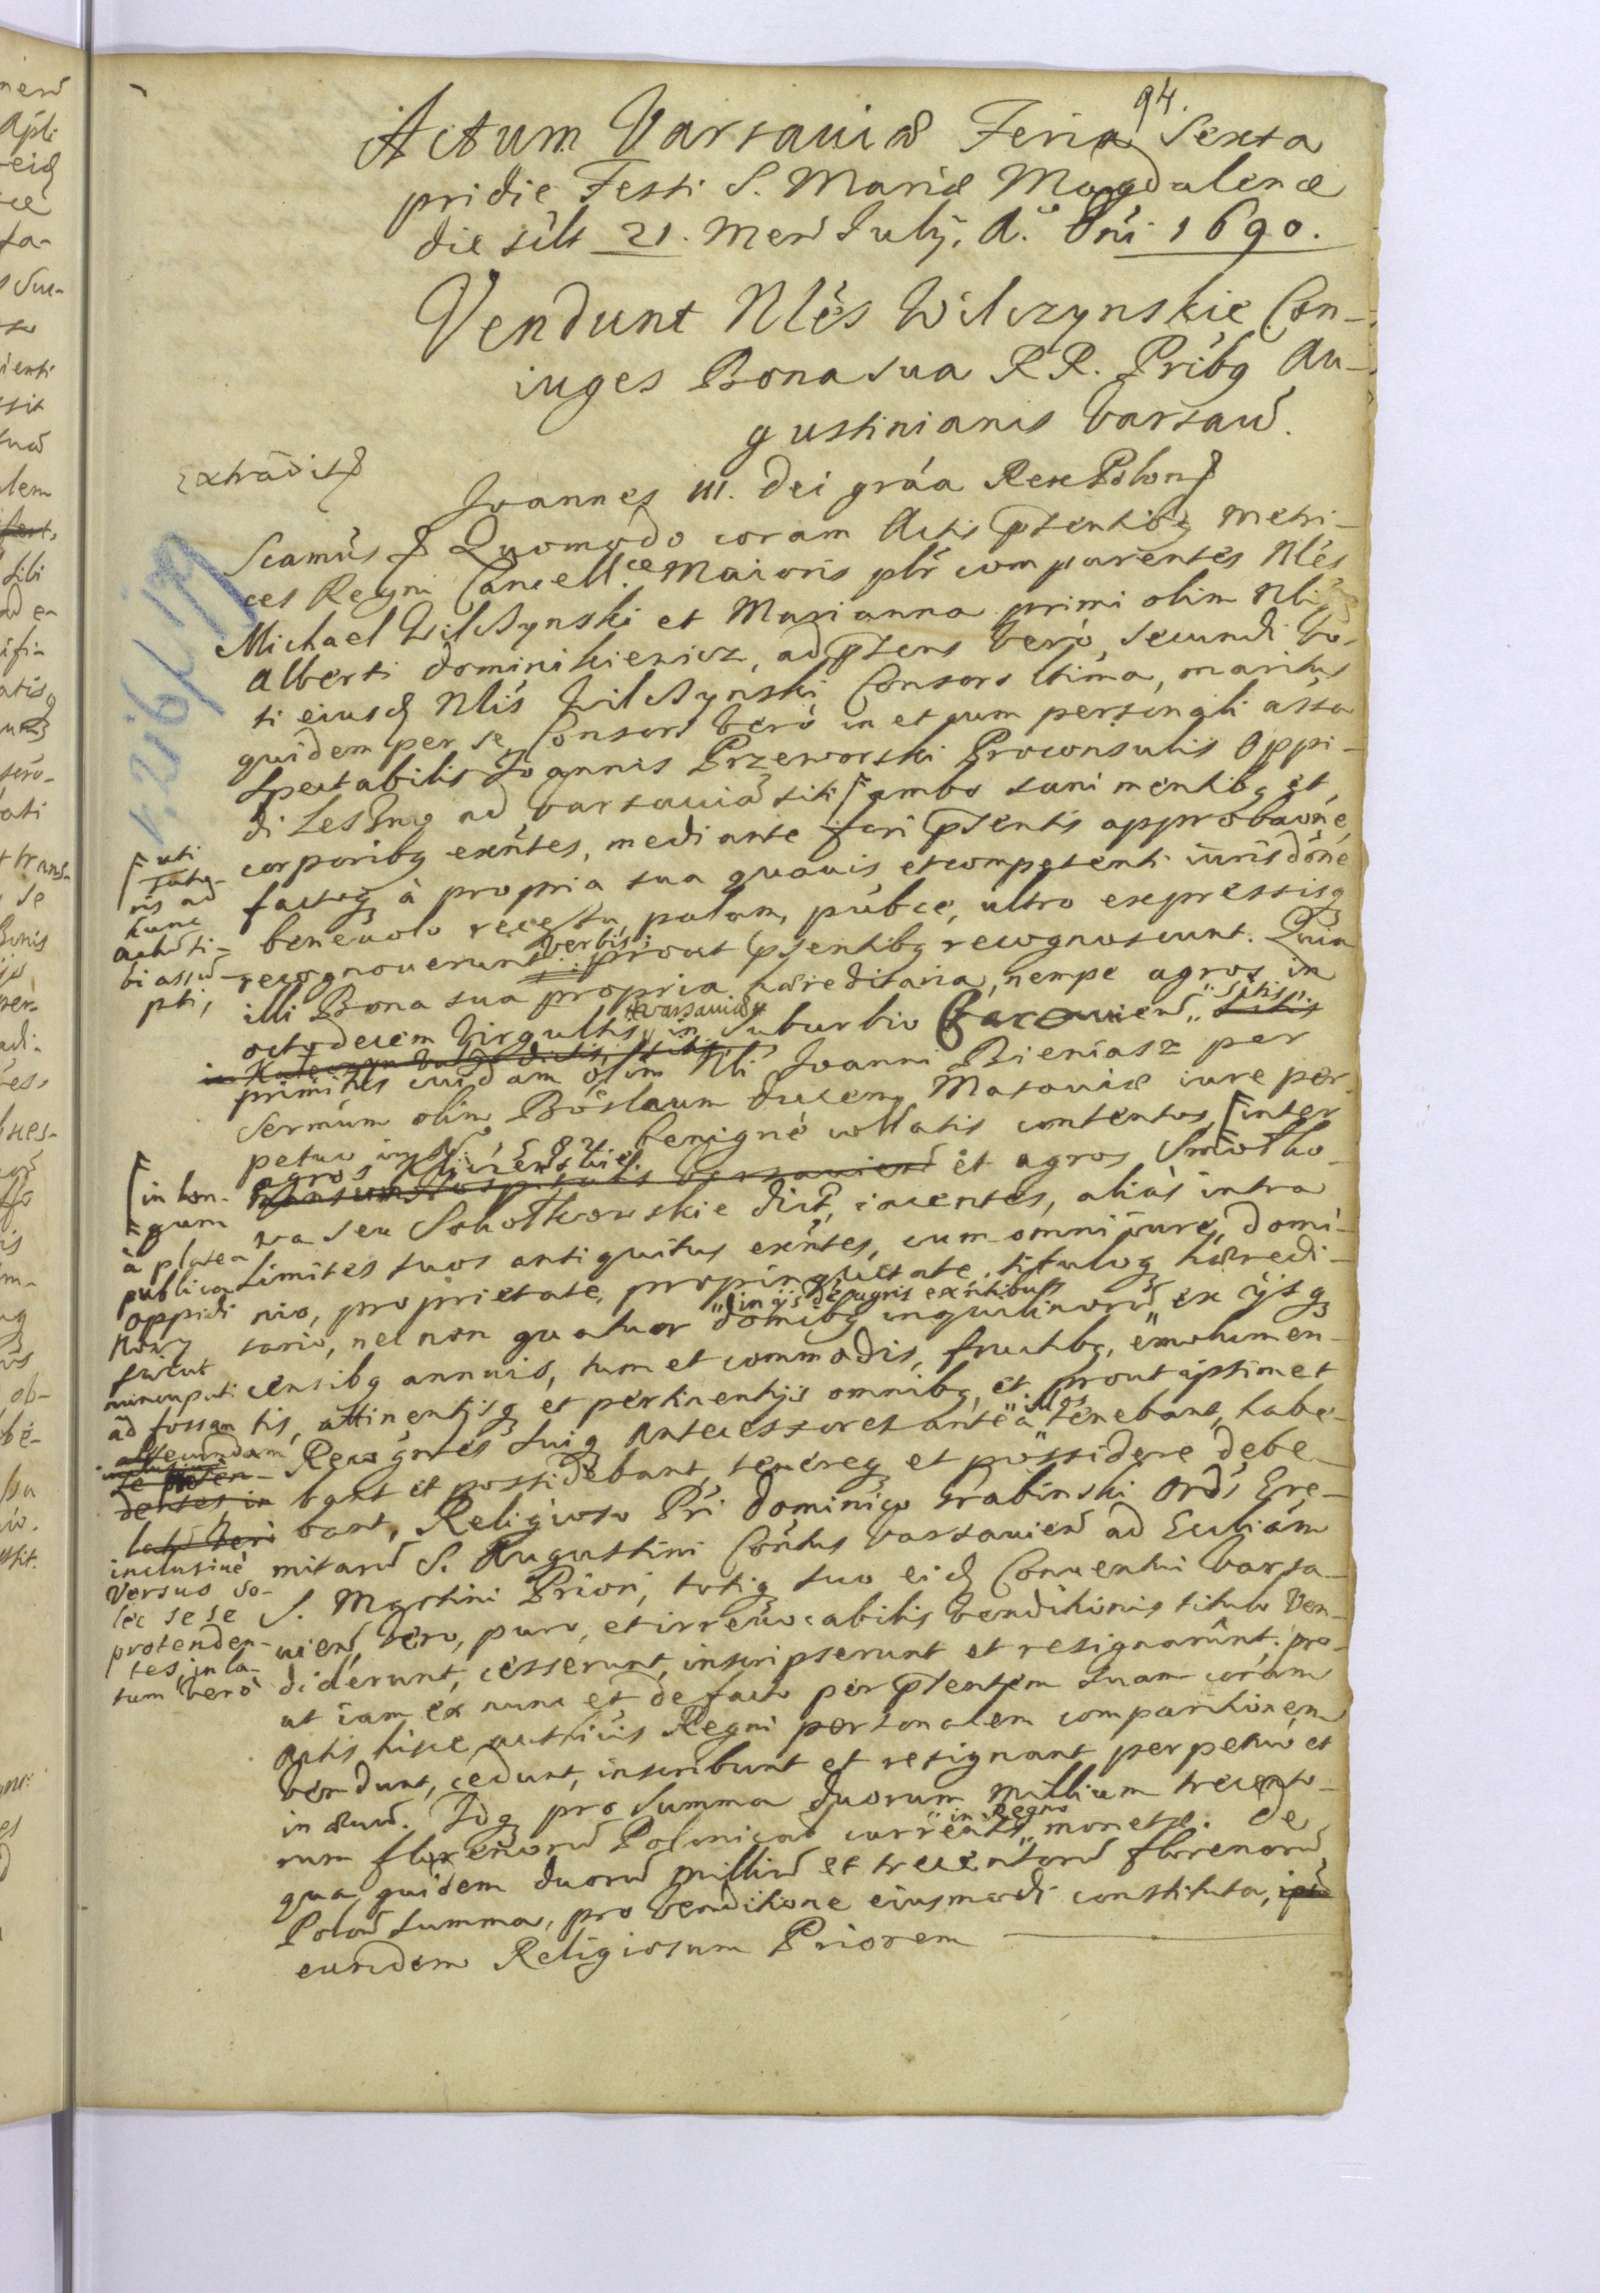 94.
Actum Varsauiæ Feria Sexta
pridie Festi S. Mariæ Magdalenæ
die silt 21. Mens July, A.º Dni 1690.
Vendunt Nlės Wilczynskie Con-
iuges Bona sua RR. Pribq Au-
gustinianis Varsaw.
extradit
Joannes III. Dei gráa Rex Polon
Scamus Quomodo coram Actis pntibq Metri-
ces Regni Cancell.æ Maioris plr comparentes Nlės
Michael Wilczynski et Marianna primi olim Nli
Alberti Dominikiewicz, ad ptens verò, secundi vo-
ti eiusd Nlis Wilczynski Consors ltima, maritus
quidem per se, Consors verò in et cum persingli assa
Spectabilis Joannis Przeworski Proconsulis Oppi-
di Leszno ad Varsauiã siti ambo sani mentibq et
corporibq exntes, mediante fori pntis approbaone,
factoq à propria sua quauis et competenti iurisdone
beneuolo recessu, palam, pubce, ultro expressisq
recognouerunt verbis; prout pntibq recognoscunt. Quia
illi Bona sua propria hæreditaria, nempe agros in
octodecem Virgultis, in Suburbio Varsauien, sitis
primitus cuidam olim Nli Joanni Bieniasz per
Sermum olim Boslaum Ducem Masouiæ iure per-
petuo benigné collatis contentos, inter
agros et agros Smolko-
wa seu Sokołkowskie dict, iacentes, aliàs intra
Limites suos antiquitus exntes, cum omni iure, domi-
nio, proprietate, propinquitate, tituloq hæredi-
in ijsd agris exntibus
tario, nec non quatuor domibq inquilinorũ, ex ijsq
censibq annuis, tum et commodis, fructibq, emolumen-
tis, attinentijsq et pertinentijs omnibq, et prout ipsimet
Recogntes suiq Antecessores antea tenebant, habe-
bant et possidebant, tenereq et possidere debe-
bant, Religioso Pri Dominico Grabinski Ordis Ere-
mitarũ S. Augustini Contus Varsauien ad Eccliam
S. Martini Priori, totiq suo eid Conuentui Varsa-
uien, vero, puro, et irreuocabilis venditionis titulo Ven-
diderunt, cesserunt, inscripserunt et resignarunt; pro-
ut iam ex nunc et de facto per pntem suam coram
Actis hisce Regni personalem comparitionem
vendunt, cedunt, inscribunt et resignant perpetuò et
in æuum. Idq pro Summa duorum Millium trecento-
in Regno
rum florenorũ Polonicaæ currentis monetæ. De
qua quidem duorũ Milliũ et trecentorũ florenorũ
Polon Summa, pro venditione eiusmodi constituta,
eundem Religiosum Priorem
uti
ris ad
hunc
Actũ ti-
bi assũ-
pti,
in lon-
gum
à platea
publica
Oppidi
Nowy
Swiat
nuncupati
ad fossam
inclusiué
versus So-
lec se se
protenden-
tes, in la-
tum verò